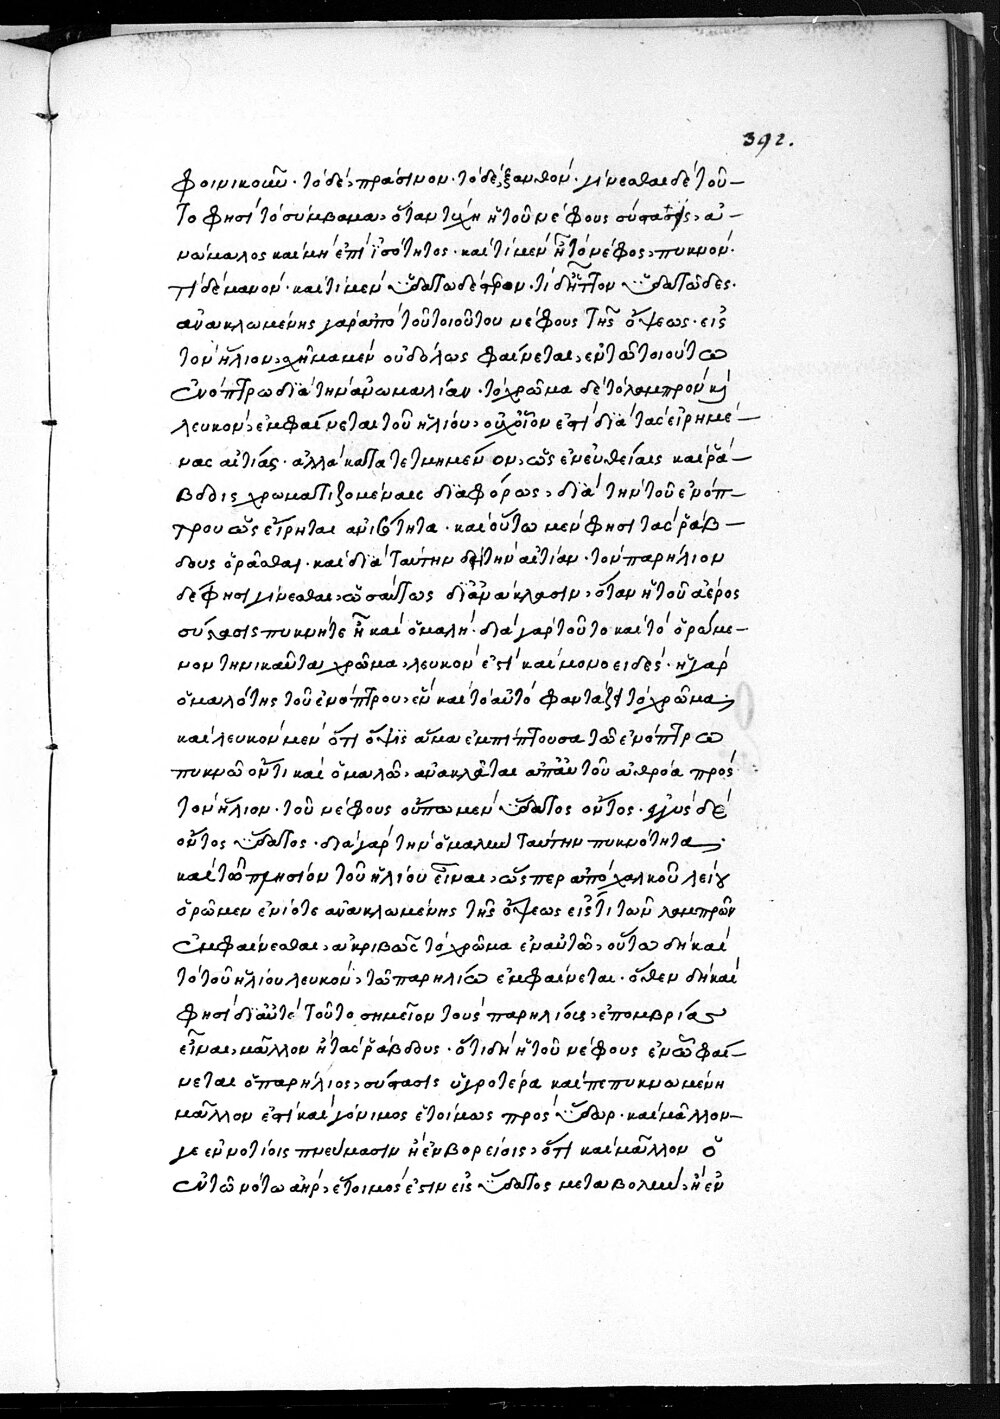 392.
φοινικοῦν· τὸ δὲ, πράσινον· τὸ δὲ, ξανθόν· γίνεσθαι δὲ τοῦ-
το φησὶ τὸ σύμβαμα, ὅταν τύχη ἡ τοῦ νέφους σύστασις, ἀ-
νώμαλος καὶ μὴ ἐπὶ ἰσότητος· καὶ τὶ μὲν ἦ τὸ νέφος, πυκνόν·
τὶ δὲ μανόν· καὶ τὶ μὲν ὑδατωδέστερον· τὶ δ' ἧττον ὑδατῶδες·
ἀνακλωμένης γὰρ ἀπὸ τοῦ τοιούτου νέφους τῆς ὄψεως· εἰς
τὸν ἥλιον, σχῆμα μὲν οὐδόλως φαίνεται, ἐν τῶ τοιούτω
ἐνόπτρω διὰ τὴν ἀνωμαλίαν· τὸ χρῶμα δὲ τὸ λαμπρὸν καὶ
λευκὸν, ἐμφαίνεται τοῦ ἡλίου, οὐχ οἷον ἐστὶ διὰ τὰς εἰρημέ-
νας αἰτίας· ἀλλὰ κατατετμημένον, ὡς ἐν εὐθείαις καὶ ῥά-
βδοις χρωματιζομέναις διαφόρως, διὰ τὴν τοῦ ἐνόπ-
τρου ὡς εἴρηται ἀνισότητα· καὶ οὕτω μὲν φησὶ τὰς ῥάβ-
δους ὁρᾶσθαι· καὶ διὰ ταύτην τὴν αἰτίαν· τὸν παρήλιον
δέ φησι γίνεσθαι, ὡσαύτως δι' ἀνάκλασιν, ὅταν ἡ τοῦ ἀέρος
σύστασις πυκνή τε ἦ καὶ ὁμαλή· διὰ γὰρ τοῦτο καὶ τὸ ὁρώμε-
νον τηνικαῦτα χρῶμα, λευκόν ἐστι καὶ μονοειδές· ἡ γὰρ
ὁμαλότης τοῦ ἐνόπτρου, ἓν καὶ τὸ αὐτὸ φαντάζει τὸ χρῶμα,
καὶ λευκὸν μὲν ὅτι ὄψις ἅμα ἐμπίπτουσα τῶ ἐνόπτρω
πυκνῶ ὄντι καὶ ὁμαλῶ, ἀνακλᾶται ἀπ' αὐτοῦ ἀθρόα πρὸς
τὸν ἥλιον· τοῦ νέφους οὔπω μὲν ὕδατος ὄντος· ἐγγὺς δὲ
ὄντος ὕδατος· διὰ γὰρ τὴν ὁμαλὴν ταύτην πυκνότητα
καὶ τῶ πλησίον τοῦ ἡλίου εἶναι, ὥσπερ ἀπὸ χαλκοῦ λείου
ὁρῶμεν ἐνίοτε ἀνακλωμένης τῆς ὄψεως εἴς τι τῶν λαμπρῶν
ἐμφαίνεσθαι, ἀκριβῶς τὸ χρῶμα ἐν αὐτῶ, οὕτω δὴ καὶ
τὸ τοῦ ἡλίου λευκὸν, τῶ παρηλίω ἐμφαίνεται· ὅθεν δὴ καὶ
φησὶ δι' αὐτὸ τοῦτο σημεῖον τοὺς παρηλίους, ἐπομβρίας
εἶναι, μᾶλλον ἢ τὰς ῥάβδους· ὅτι δὴ ἡ τοῦ νέφους ἐν ᾧ φαί-
νεται ὁ παρήλιος, σύστασις ὑγροτέρα καὶ πεπυκνωμένη
μᾶλλον ἐστὶ καὶ γόνιμος ἑτοίμως πρὸς ὕδωρ· καὶ μᾶλλον
γε ἐν νοτίοις πνεύμασιν ἢ ἐν βορείοις, ὅτι καὶ μᾶλλον ὁ
ἐν τῶ νότω ἀὴρ, ἕτοιμός ἐστιν εἰς ὕδατος μεταβολὴν, ἢ ἐν